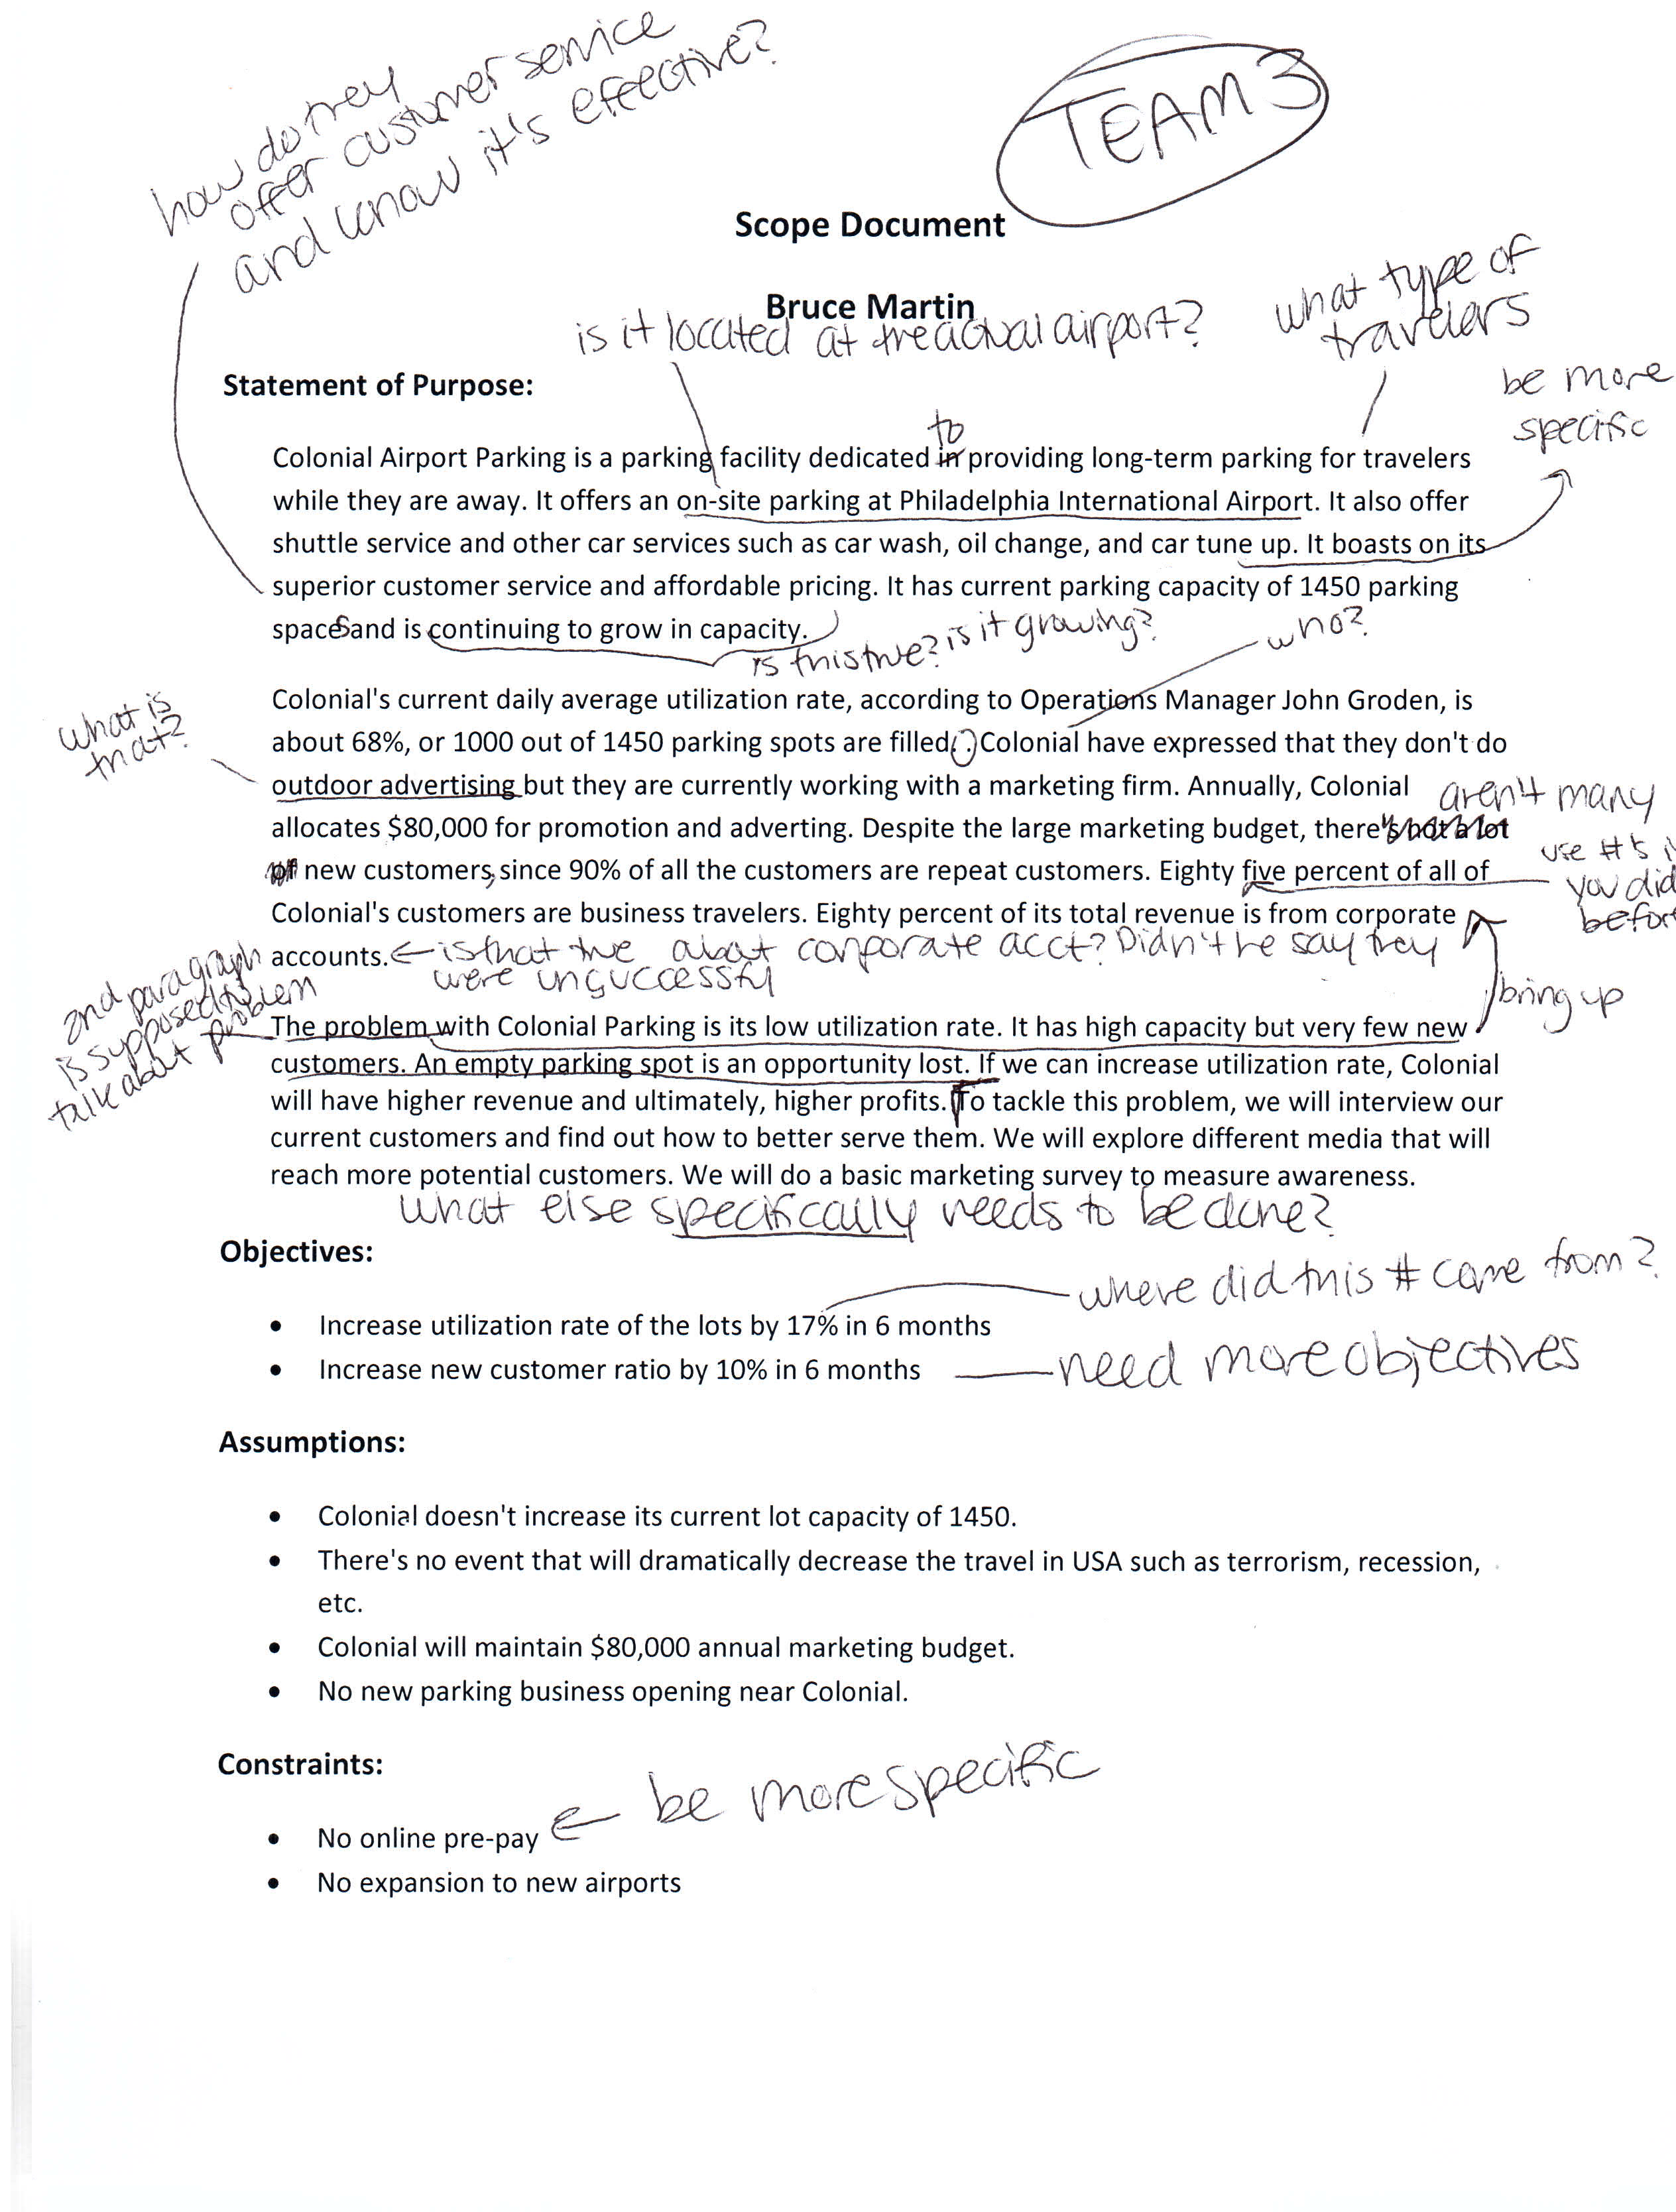 how do they
offer customer service
and know it's effective?
TEAM 3
Scope Document
Bruce Martin
is it located at the actual airport?
what type of
travelers
be more
specific
Statement of Purpose:
to
Colonial Airport Parking is a parking facility dedicated in providing long-term parking for travelers
while they are away. It offers an on-site parking at Philadelphia International Airport. It also offer
shuttle service and other car services such as car wash, oil change, and car tune up. It boasts on its
superior customer service and affordable pricing. It has current parking capacity of 1450 parking
spaces and is continuing to grow in capacity.
is this true? is it growing?
who?
Colonial's current daily average utilization rate, according to Operations Manager John Groden, is
what is
that?
about 68%, or 1000 out of 1450 parking spots are filled. Colonial have expressed that they don't do
outdoor advertising but they are currently working with a marketing firm. Annually, Colonial
aren't many
allocates $80,000 for promotion and adverting. Despite the large marketing budget, there's not a lot
of new customers, since 90% of all the customers are repeat customers. Eighty five percent of all of
use #'s
you did
before
Colonial's customers are business travelers. Eighty percent of its total revenue is from corporate
accounts.
is that true about corporate acct? Didn't he say they
were unsuccessful
bring up
2nd paragraph
is supposed to
talk about problem
The problem with Colonial Parking is its low utilization rate. It has high capacity but very few new
customers. An empty parking spot is an opportunity lost. If we can increase utilization rate, Colonial
will have higher revenue and ultimately, higher profits. To tackle this problem, we will interview our
current customers and find out how to better serve them. We will explore different media that will
reach more potential customers. We will do a basic marketing survey to measure awareness.
what else specifically needs to be done?
Objectives:
where did this # come from?
• Increase utilization rate of the lots by 17% in 6 months
• Increase new customer ratio by 10% in 6 months
need more objectives
Assumptions:
• Colonial doesn't increase its current lot capacity of 1450.
• There's no event that will dramatically decrease the travel in USA such as terrorism, recession,
etc.
• Colonial will maintain $80,000 annual marketing budget.
• No new parking business opening near Colonial.
Constraints:
be more specific
• No online pre-pay
• No expansion to new airports